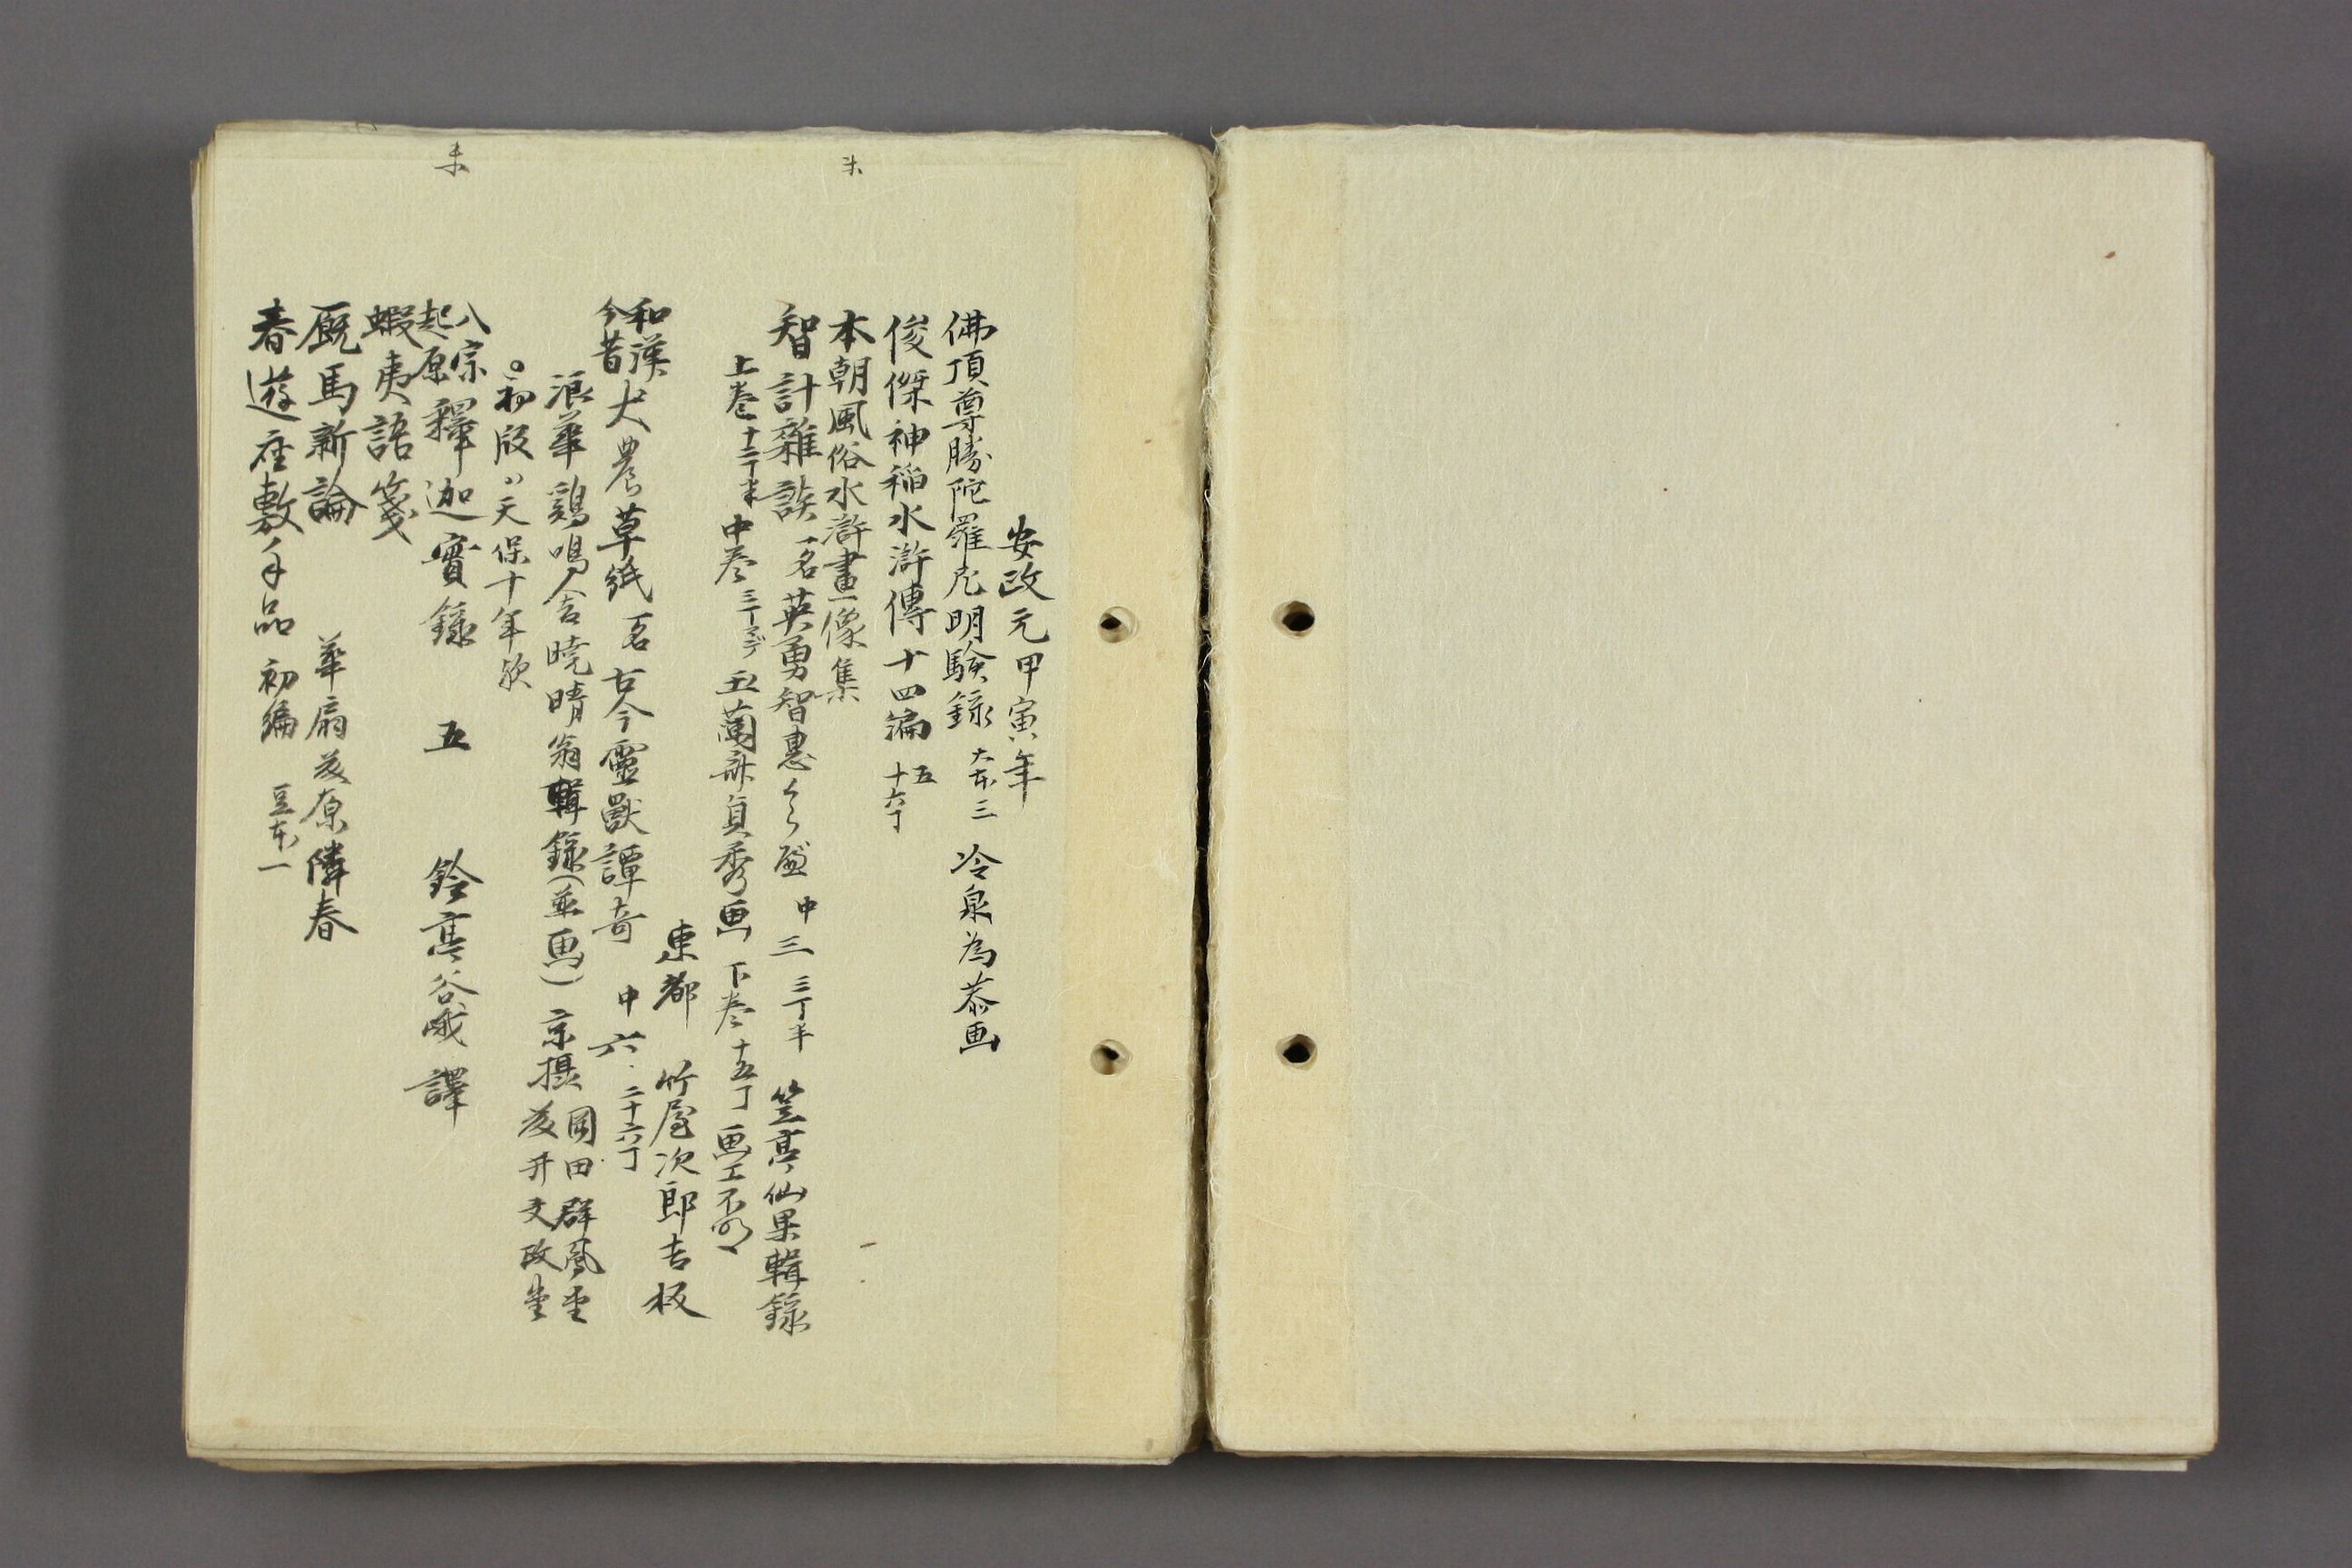 安政元甲寅年
佛頂尊勝陀羅尼明験録 大本三 冷泉為恭画
俊傑神稲水滸傳十四編 五 十六丁
未
本朝風俗水滸畫像集
智計雜談 一名英勇智恵くらべ 中三 三丁半 笠亭仙果輯録
上巻十二丁半 中巻三丁 五蘭斎貞秀画 下巻十五丁 画工不明
東都 竹屋次郎吉板
和漢今昔 犬農草紙 一名古今霊獣譚奇 中六 二十六丁
浪華 鶏鳴舎暁晴翁輯録(並画) 京摂 岡田群鳳堂 友井文政堂
初版ハ天保十年欤
未
八宗起原 釋迦實録 五 鈴亭谷峨譯
蝦夷語箋
厩馬新論 華扇 友原隣春
春遊座敷手品 初編 豆本一